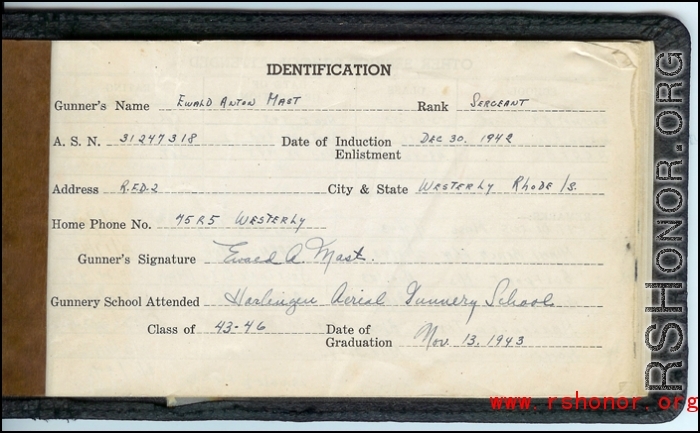 IDENTIFICATION
Gunner's Name Ewald Anton Mast Rank Sergeant
A. S. N. 31247318 Date of Induction Dec 30. 1942
Enlistment
Address R.F.D.2 City & State Westerly Rhode Is.
Home Phone No. 75R5 Westerly
Gunner's Signature Ewald A. Mast.
Gunnery School Attended Harlingen Aerial Gunnery School.
Class of 43-46 Date of Graduation Nov. 13, 1943
RSHONOR.ORG
www.rshonor.org